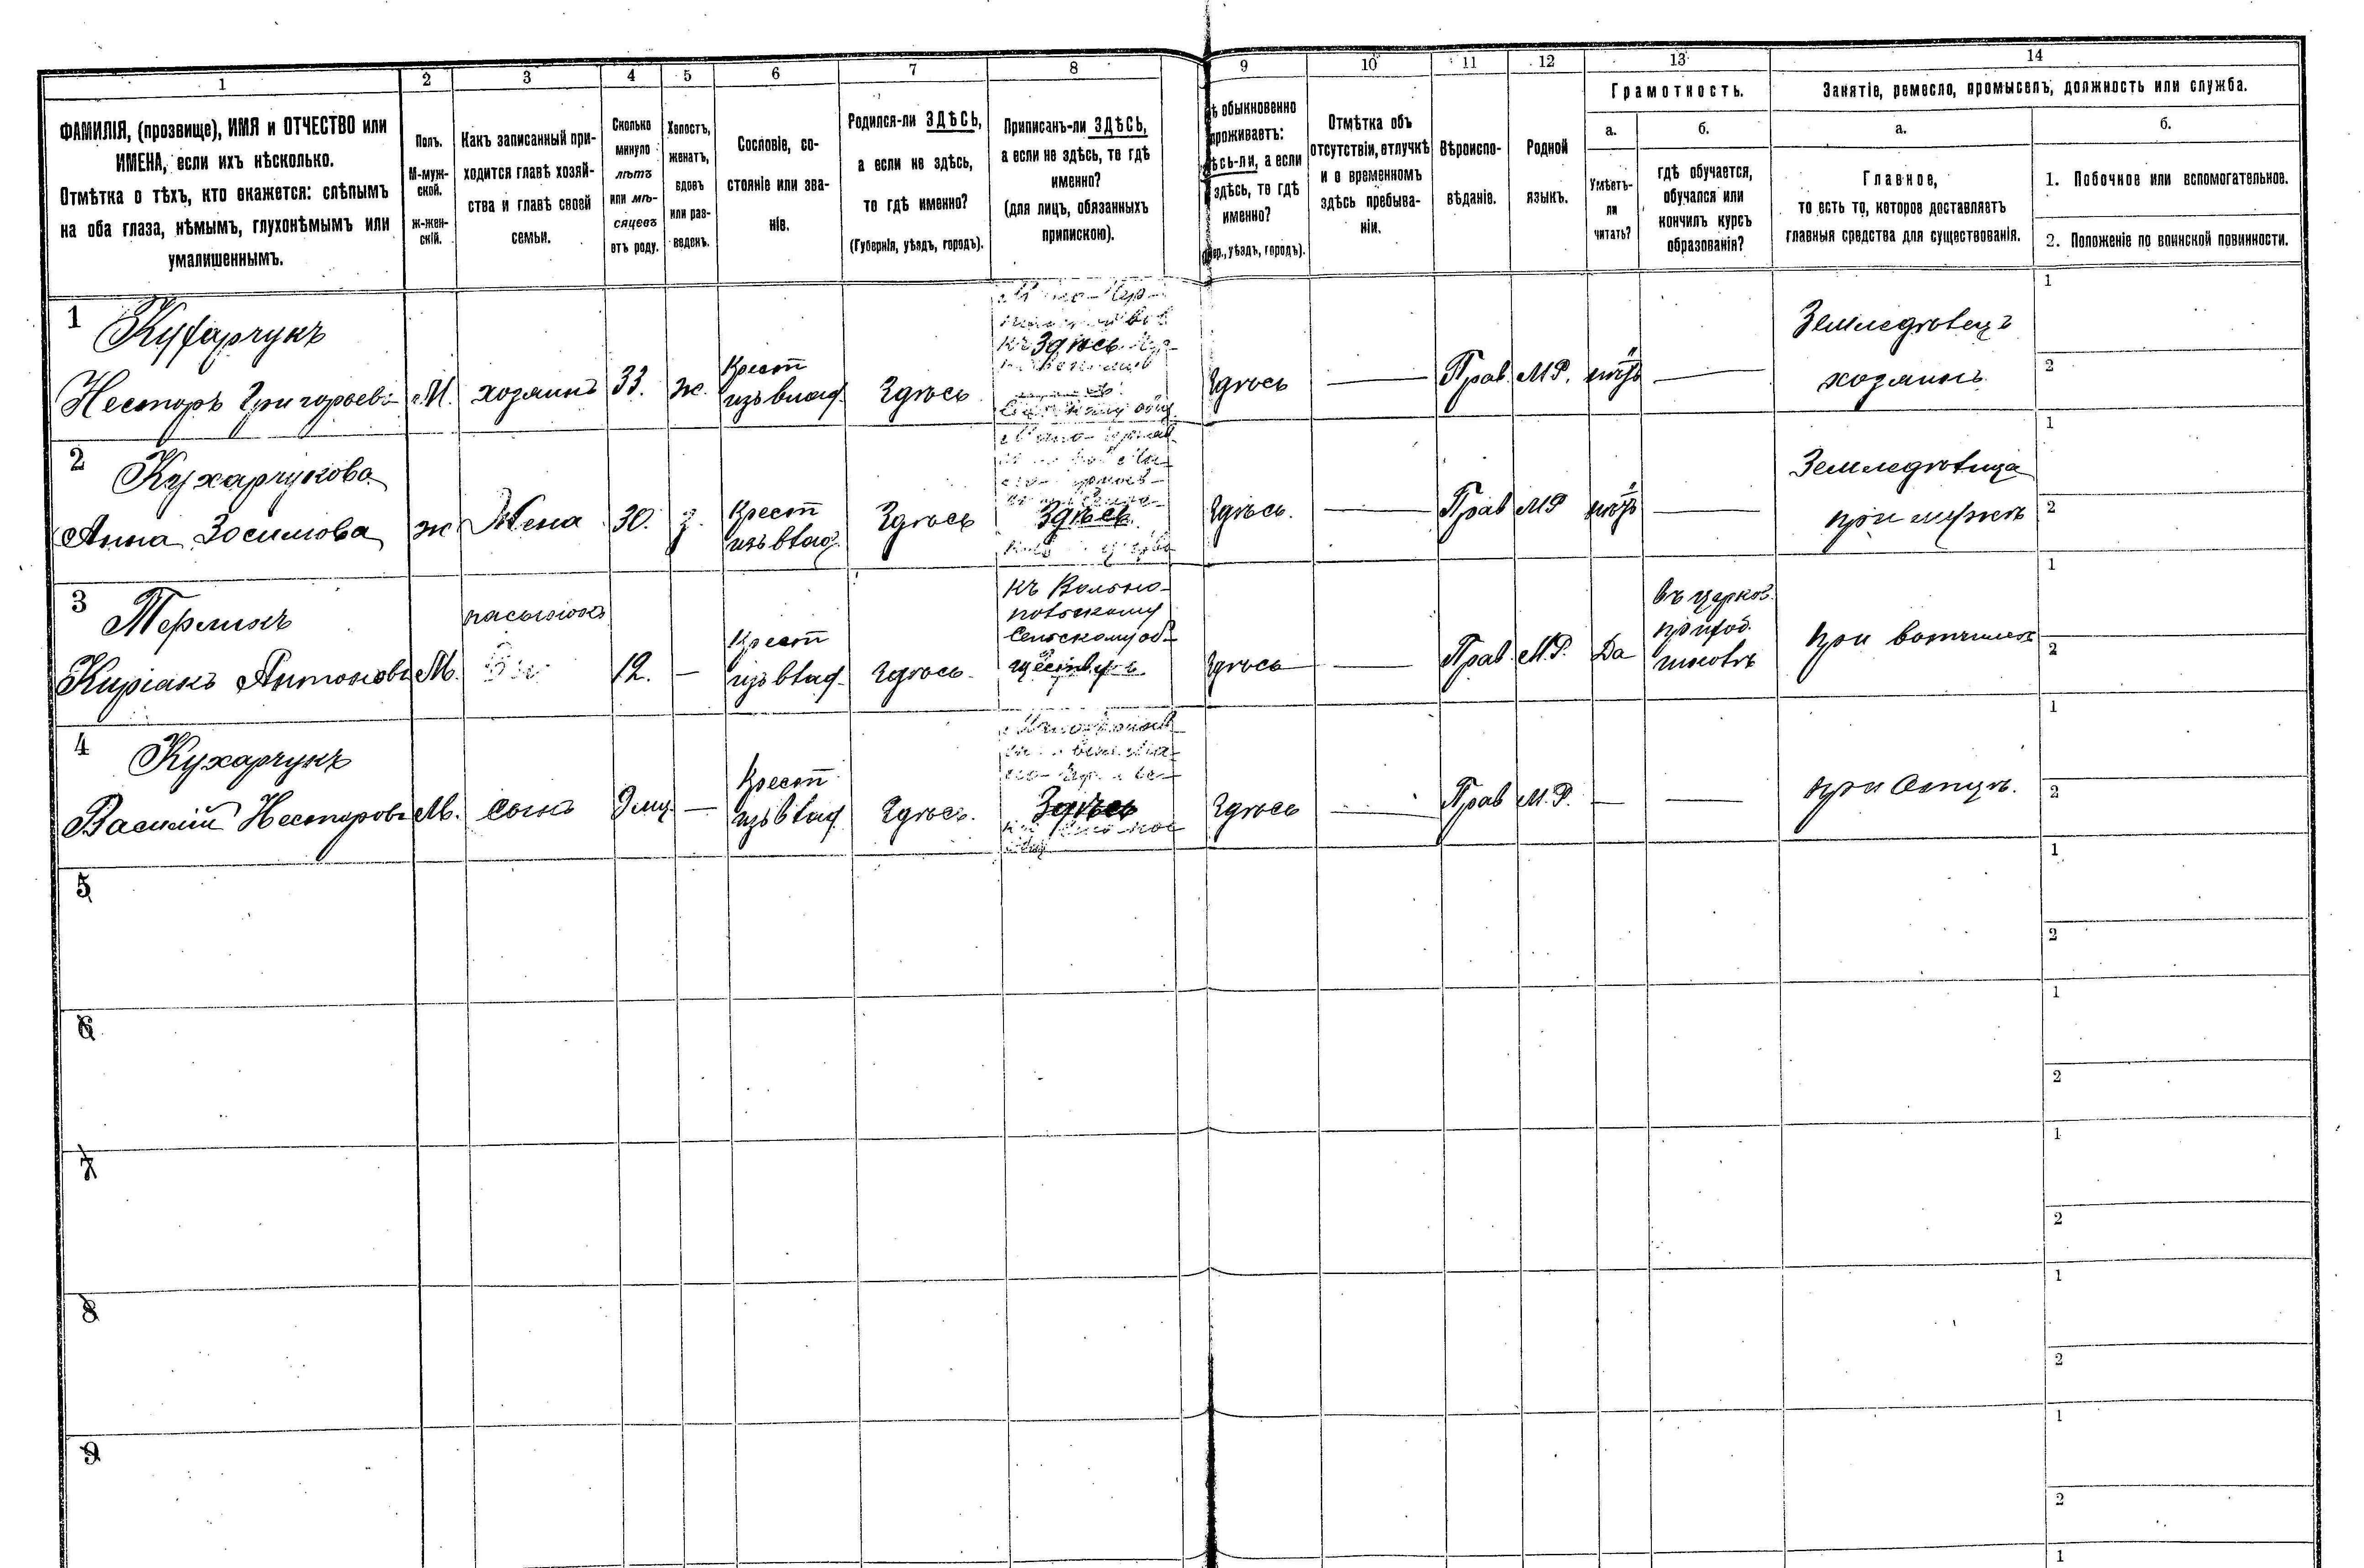 1 2 3 4 5 6 7 8 9 10 11 12 13 14
ФАМИЛІЯ, (прозвище), ИМЯ и ОТЧЕСТВО или
ИМЕНА, если ихъ нѣсколько.
Отмѣтка о тѣхъ, кто окажется: слѣпымъ
на оба глаза, нѣмымъ, глухонѣмымъ или
умалишеннымъ.
Полъ.
М-муж-
ской.
ж-жен-
скій.
Какъ записанный при-
ходится главѣ хозяй-
ства и главѣ своей
семьи.
Сколько
минуло
лѣтъ
или мѣ-
сяцевъ
отъ роду.
Холостъ,
женатъ,
вдовъ
или раз-
веденъ.
Сословіе, со-
стояніе или зва-
ніе.
Родился-ли ЗДѢСЬ,
а если не здѣсь,
то гдѣ именно?
(Губернія, уѣздъ, городъ).
Приписанъ-ли ЗДѢСЬ,
а если не здѣсь, то гдѣ
именно?
(для лицъ, обязанныхъ
припискою).
обыкновенно
проживаетъ:
а если
здѣсь, то гдѣ
именно?
уѣздъ, городъ).
Отмѣтка объ
отсутствіи, отлучкѣ
и о временномъ
здѣсь пребыва-
ніи.
Вѣроиспо-
вѣданіе.
Родной
языкъ.
Грамотность.
а.
Умѣетъ-
ли
читать?
б.
гдѣ обучается,
обучался или
кончилъ курсъ
образованія?
Занятіе, ремесло, промыселъ, должность или служба.
а.
Главное,
то есть то, которое доставляетъ
главныя средства для существованія.
б.
1. Побочное или вспомогательное.
2. Положеніе по воинской повинности.
1 Кухарчукъ
Несторъ Григорьевъ
М.
хозяинъ
33.
ж.
Крест
изъ влад.
Здѣсь
Здѣсь
Здѣсь
—
Прав.
М.Р.
нѣтъ
—
Земледѣлецъ
хозяинъ
1
2
2 Кухарчукова
Анна Зосимова
ж
Жена
30.
з.
Крест
изъ влад.
Здѣсь
Здѣсь
Здѣсь.
—
Прав
МР
нѣтъ
—
Земледѣлица
при мужѣ
1
2
3 Терликъ
Киріакъ Антоновъ
М.
пасынокъ
12.
—
Крест
изъ влад.
Здѣсь.
къ Вольно-
Сельскому об-
ществу
Здѣсь
—
Прав.
М.Р.
Да
въ церков.
приход.
школѣ
при вотчимѣ
1
2
4 Кухарчукъ
Василій Несторовъ
М.
сынъ
9 мц
—
Крест
изъ влад.
Здѣсь.
Здѣсь
Здѣсь
—
Прав
М.Р.
—
—
при Отцѣ.
1
2
5
1
2
6
1
2
7
1
2
8
1
2
9
1
2
1